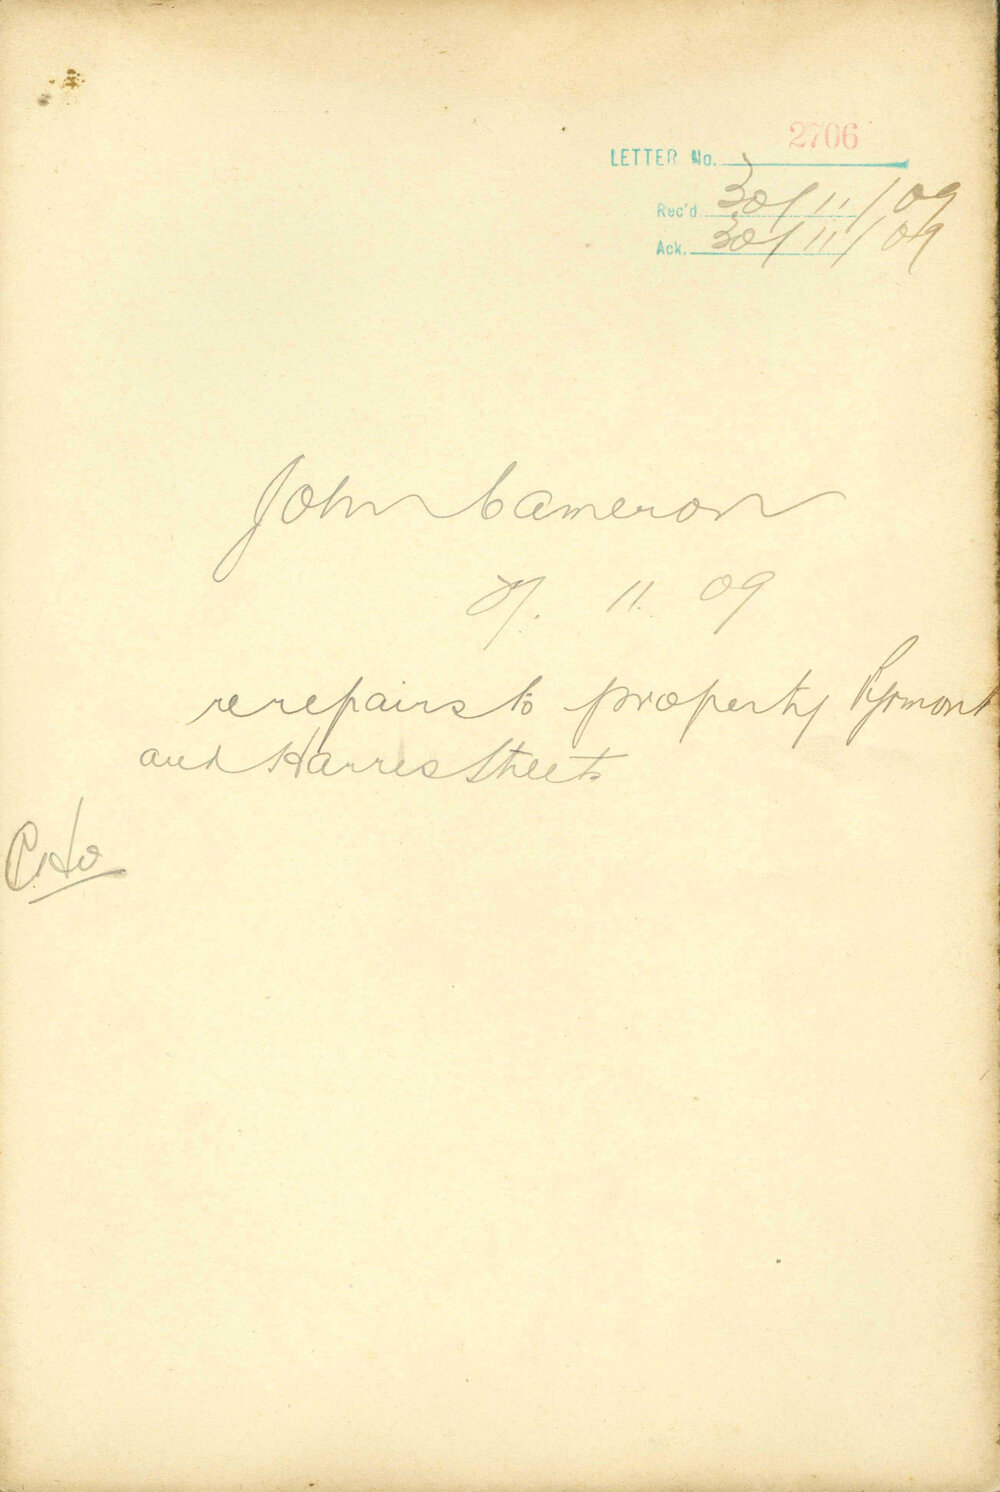 2706
LETTER No.
Rec'd 30/11/09
Ack. 30/11/09
John Cameron
27. 11. 09
re repairs to property Pyrmont
and Harris Streets